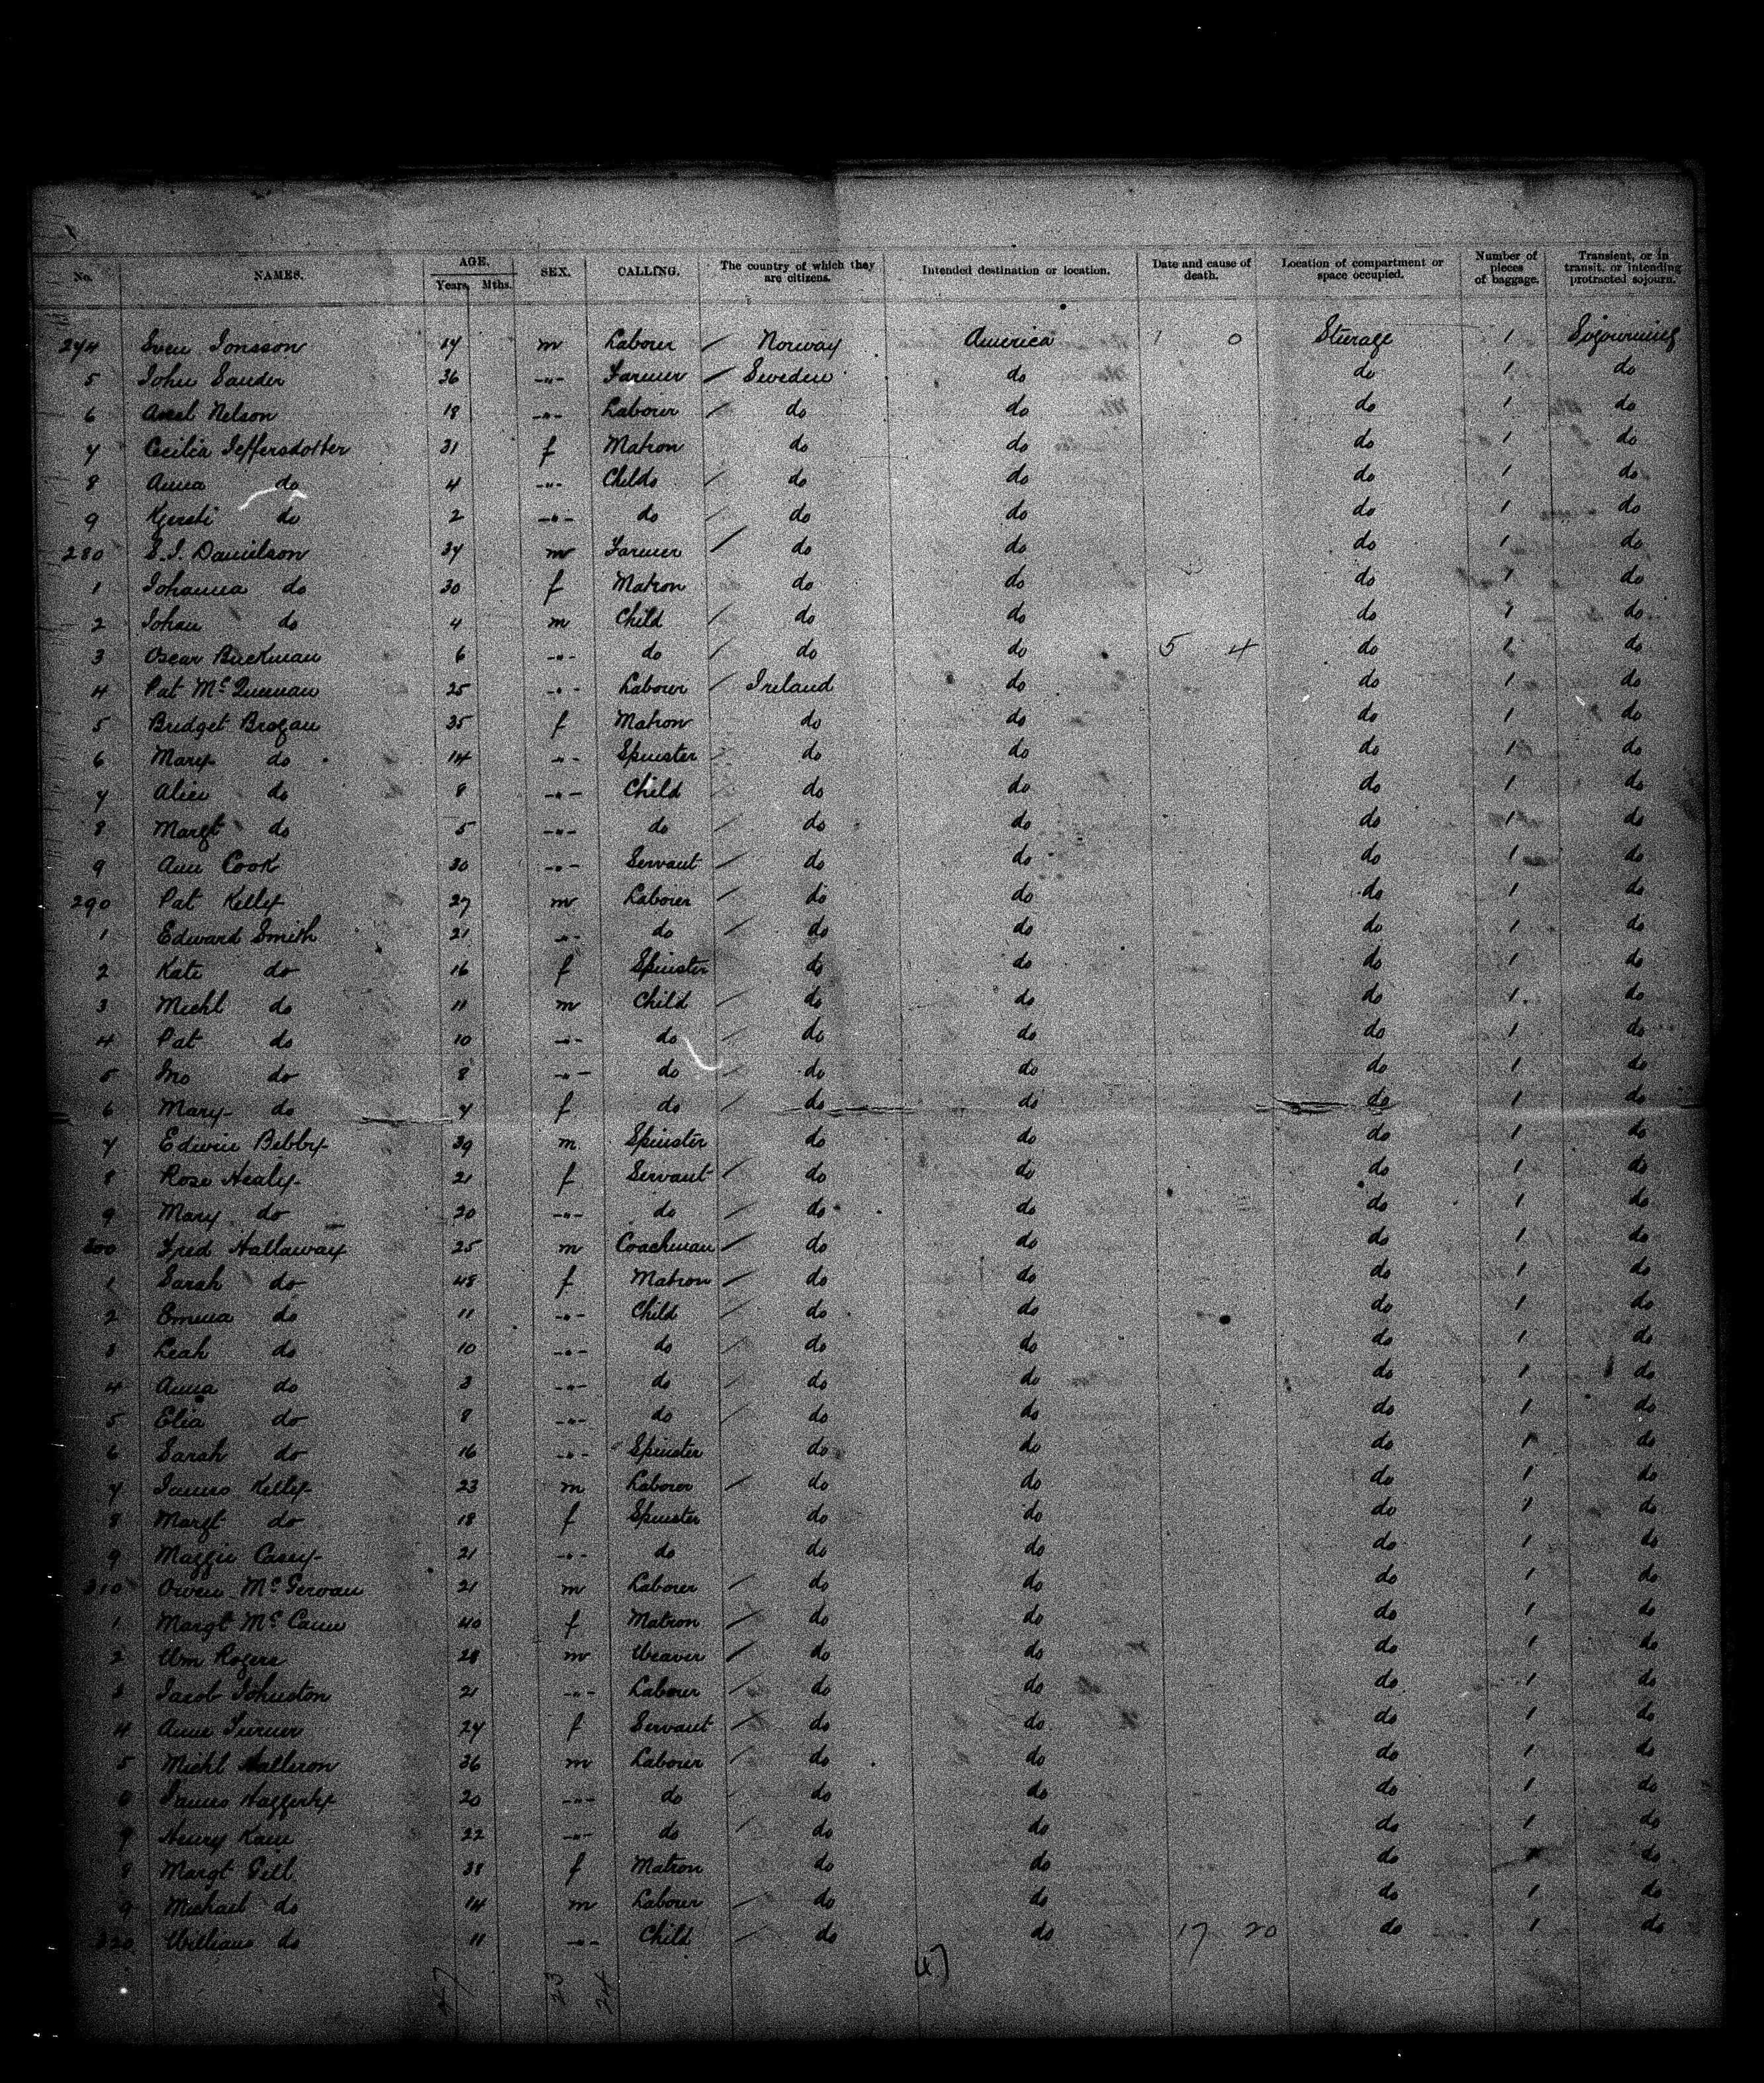 No. NAMES. AGE. Years Mths. SEX. CALLING. The country of which they are citizens. Intended destination or location. Date and cause of death. Location of compartment or space occupied. Number of pieces of baggage. Transient, or in transit, or intending protracted sojourn.
274 Sven Jonsson 17 m Laborer / Norway America 1 0 Sturage 1 Sojourning
5 John Sander 36 -"- Farmer / Sweden do do 1 do
6 Axel Nelson 18 -"- Laborer / do do do 1 do
7 Cecilia Jeffersdotter 31 f Matron do do do 1 do
8 Anna do 4 -"- Childs / do do do 1 do
9 Kjersti do 2 -"- do / do do do 1 do
280 S. J. Danielson 34 m Farmer / do do do 1 do
1 Johanna do 30 f Matron do do do 1 do
2 Johan do 4 m Child / do do do 1 do
3 Oscar Buckman 6 -"- do / do do 5 4 do 1 do
4 Pat 25 -"- Laborer / Ireland do do 1 do
5 Bridget Brogan 35 f Matron do do do 1 do
6 Mary do 14 -"- Spinster do do do 1 do
7 Alice do 8 -"- Child do do do 1 do
8 Margt do 5 -"- do / do do do 1 do
9 Ann Cook 30 -"- Servant / do do do 1 do
290 Pat Kelly 27 m Laborer / do do do 1 do
1 Edward Smith 21 -"- do / do do do 1 do
2 Kate do 16 f Spinster do do do 1 do
3 Michl do 11 m Child / do do do 1 do
4 Pat do 10 -"- do / do do do 1 do
5 Jno do 8 -"- do / do do do 1 do
6 Mary do 7 f do / do do do 1 do
7 Edwin Bebby 39 m Spinster do do do 1 do
8 Rose Healy 21 f Servant / do do do 1 do
9 Mary do 20 -"- do / do do do 1 do
300 Fred Hallaway 25 m Coachman / do do do 1 do
1 Sarah do 48 f Matron / do do do 1 do
2 Emma do 11 -"- Child / do do do 1 do
3 Leah do 10 -"- do / do do do 1 do
4 Anna do 3 -"- do / do do do 1 do
5 Elia do 8 -"- do / do do do 1 do
6 Sarah do 16 -"- Spinster do do do 1 do
7 James Kelly 23 m Laborer / do do do 1 do
8 Margt do 18 f Spinster do do do 1 do
9 Maggie Casey 21 -"- do do do do 1 do
310 Owen McGervan 21 m Laborer / do do do 1 do
1 Margt McCann 40 f Matron / do do do 1 do
2 Wm Rogers 28 m Weaver / do do do 1 do
3 Jacob Johnston 21 -"- Laborer / do do do 1 do
4 Anne Turner 24 f Servant / do do do 1 do
5 Michl Halleron 36 m Laborer / do do do 1 do
6 James Haggerty 20 -"- do / do do do 1 do
7 Henry Kane 22 -"- do / do do do 1 do
8 Margt Gill 38 f Matron do do do 1 do
9 Michael do 14 m Laborer / do do do 1 do
320 William do 11 -"- Child / do do 17 20 do 1 do
47 23 24 47